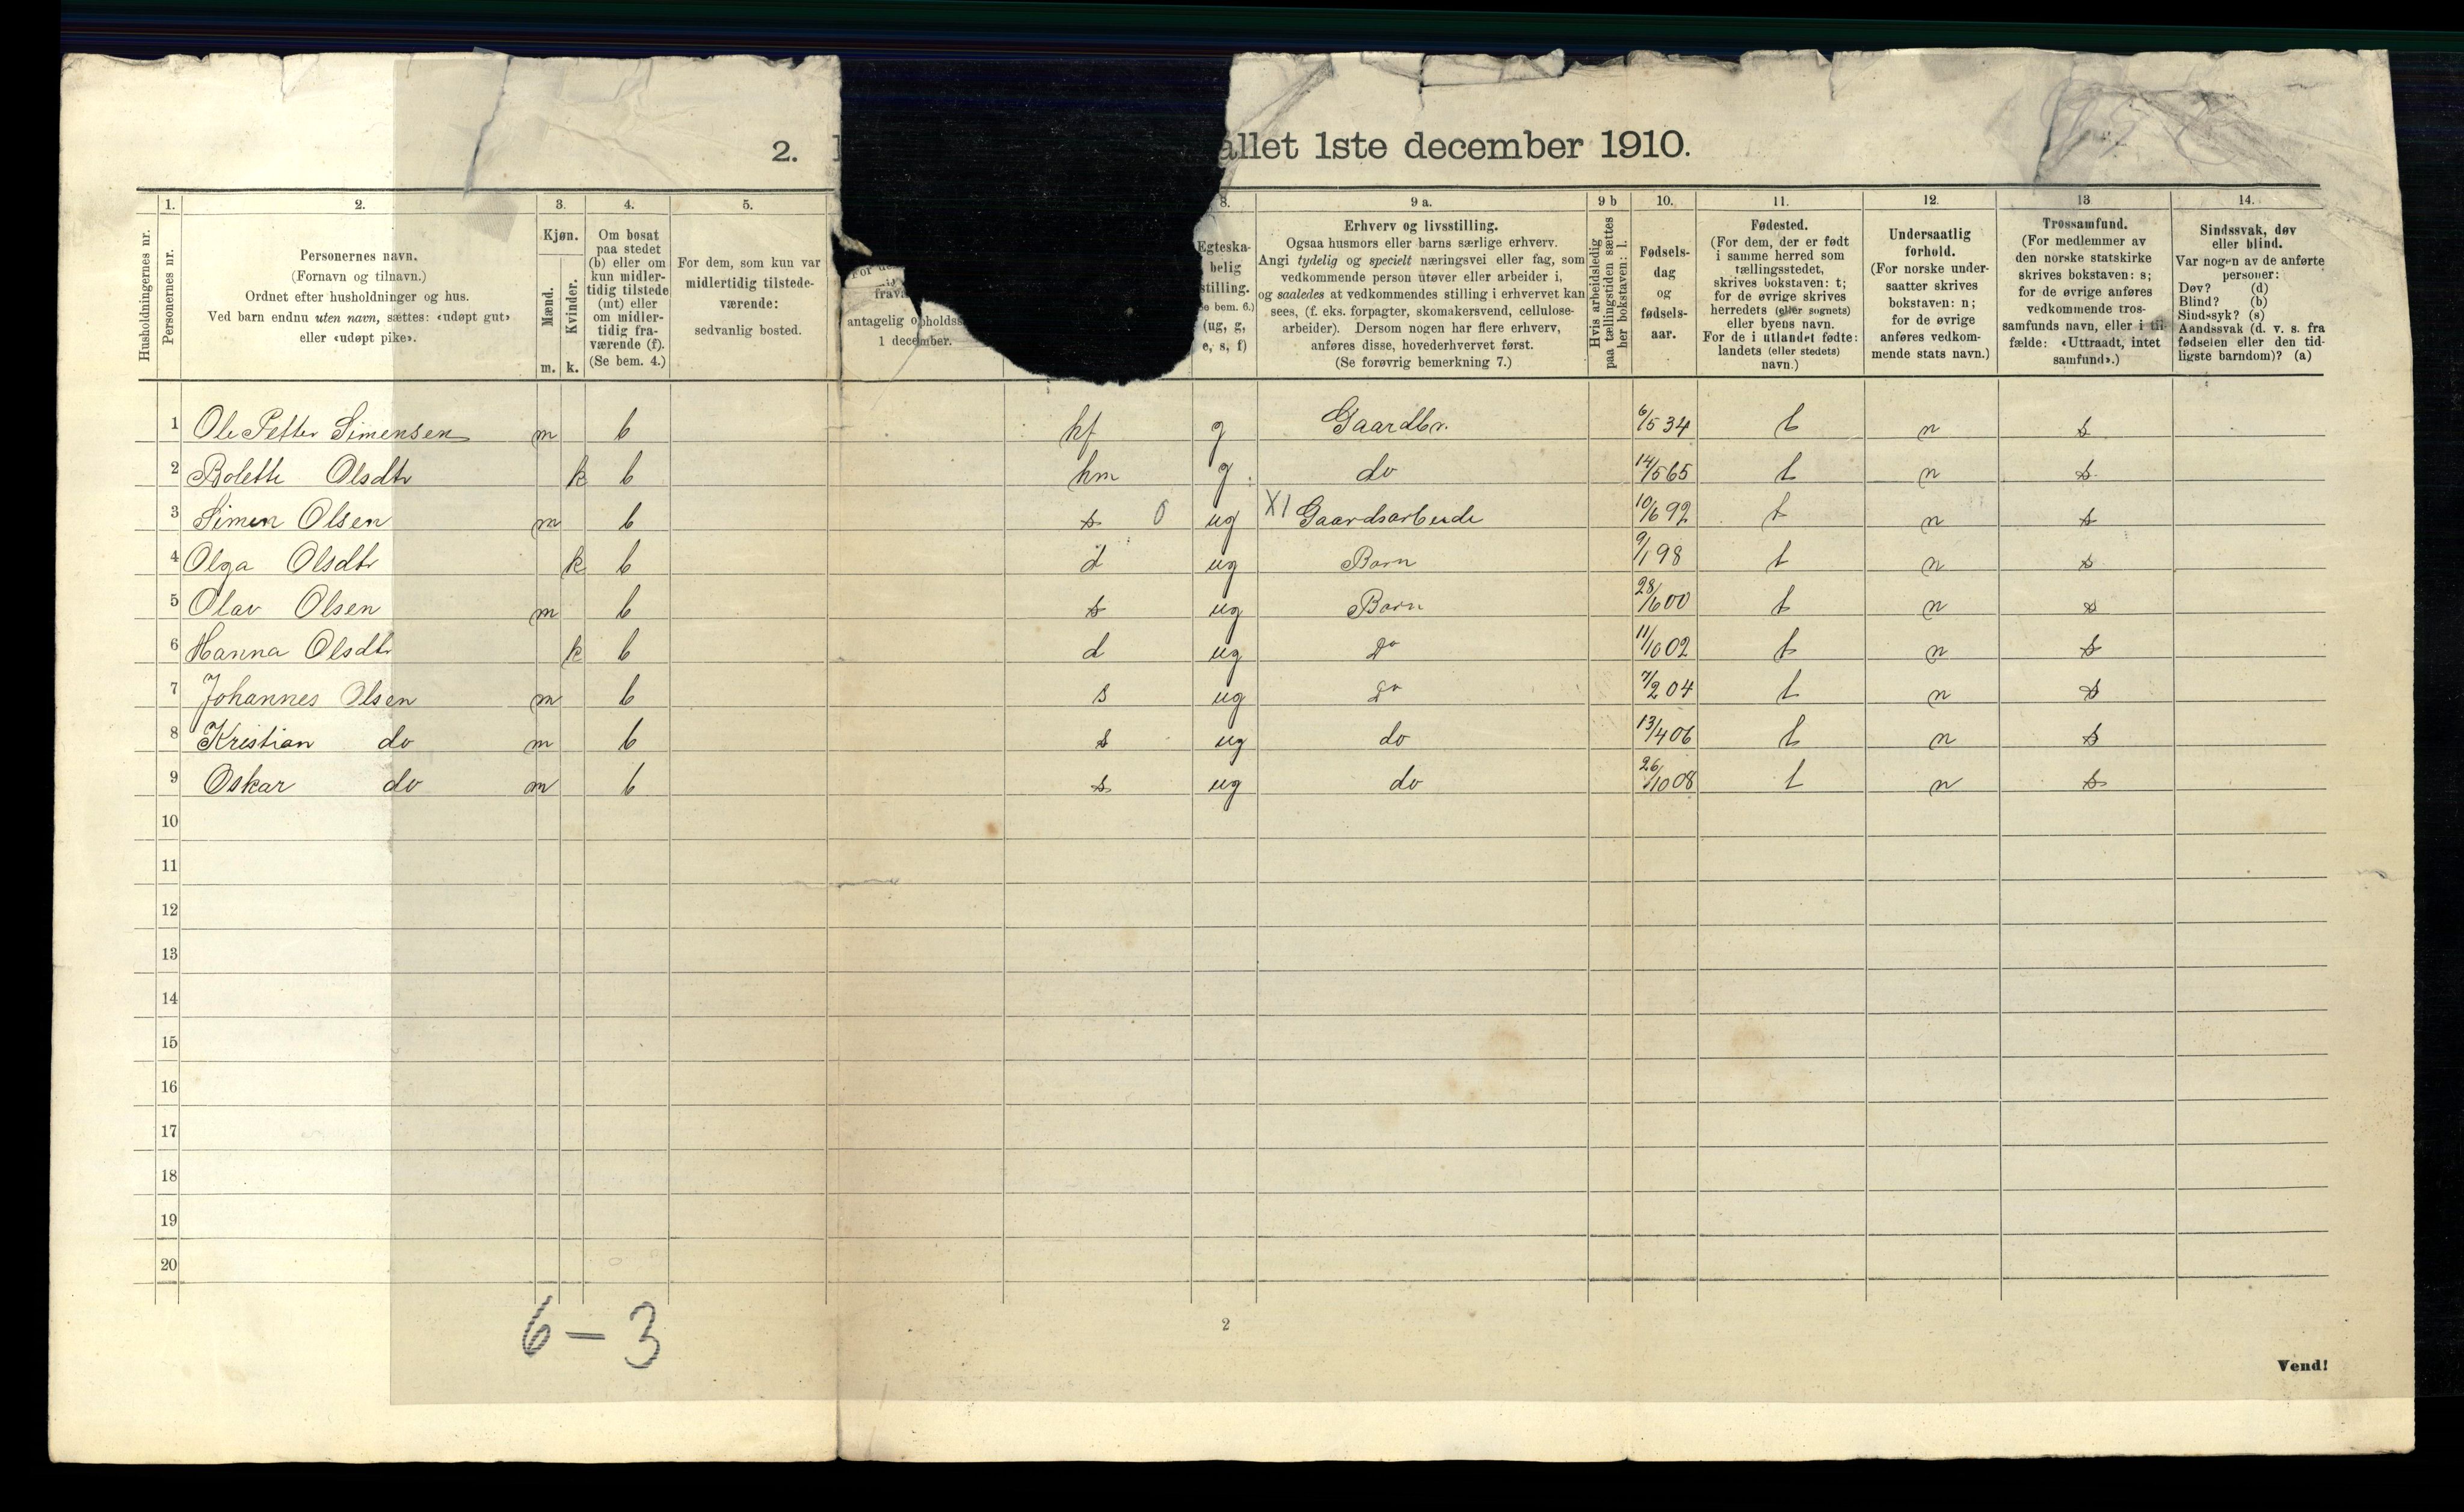 2. allet 1ste december 1910.
1. 2. 3. 4. 5. 8. 9 a. 9 b 10. 11. 12. 13 14.
Husholdningernes nr.
Personernes nr.
Personernes navn.
(Fornavn og tilnavn.)
Ordnet efter husholdninger og hus.
Ved barn endnu uten navn, sættes: «udøpt gut»
eller «udøpt pike».
Kjøn.
Mænd.
Kvinder.
m. k.
Om bosat
paa stedet
(b) eller om
kun midler-
tidig tilstede
(mt) eller
om midler-
tidig fra-
værende (f).
(Se bem. 4.)
For dem, som kun var
midlertidig tilstede-
værende:
sedvanlig bosted.
antagelig opholdss
1 december.
Egteska-
belig
stilling.
(Se bem. 6.)
(ug, g,
e, s, f)
Erhverv og livsstilling.
Ogsaa husmors eller barns særlige erhverv.
Angi tydelig og specielt næringsvei eller fag, som
vedkommende person utøver eller arbeider i,
og saaledes at vedkommendes stilling i erhvervet kan
sees, (f. eks. forpagter, skomakersvend, cellulose-
arbeider). Dersom nogen har flere erhverv,
anføres disse, hovederhvervet først.
(Se forøvrig bemerkning 7.)
Hvis arbeidsledig
paa tællingstiden sættes
her bokstaven: l.
Fødsels-
dag
og
fødsels-
aar.
Fødested.
(For dem, der er født
i samme herred som
tællingsstedet,
skrives bokstaven: t;
for de øvrige skrives
herredets (eller sognets)
eller byens navn.
For de i utlandet fødte:
landets (eller stedets)
navn.)
Undersaatlig
forhold.
(For norske under-
saatter skrives
bokstaven: n;
for de øvrige
anføres vedkom-
mende stats navn.)
Trossamfund.
(For medlemmer av
den norske statskirke
skrives bokstaven: s;
for de øvrige anføres
vedkommende tros-
samfunds navn, eller i til-
fælde: «Uttraadt, intet
samfund».)
Sindssvak, døv
eller blind.
Var nogen av de anførte
personer:
Døv? (d)
Blind? (b)
Sindssyk? (s)
Aandssvak (d. v. s. fra
fødselen eller den tid-
ligste barndom)? (a)
1 Ole Petter Simensen m b hf g Gaardbr. 6/5 34 t n s
2 Bolette Olsdtr k b hm g. do 14/5 65 t n s
3 Simen Olsen m b s 0 ug XI Gaardsarbeide 10/6 92 t n s
4 Olga Olsdtr k b d ug Barn 9/1 98 t n s
5 Olav Olsen m b s ug Barn 28/6 00 t n s
6 Hanna Olsdtr k b d ug do 11/10 02 t n s
7 Johannes Olsen m b s ug do 7/2 04 t n s
8 Kristian do m b s ug do 13/4 06 t n s
9 Oskar do m b s ug do 26/10 08 t n s
10
11
12
13
14
15
16
17
18
19
20
6 — 3
2
Vend!